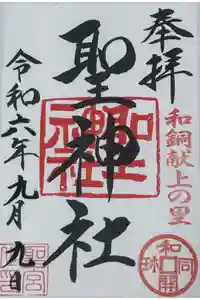 奉拝
和銅献上の里
聖神社
令和六年九月九日
和同開珎